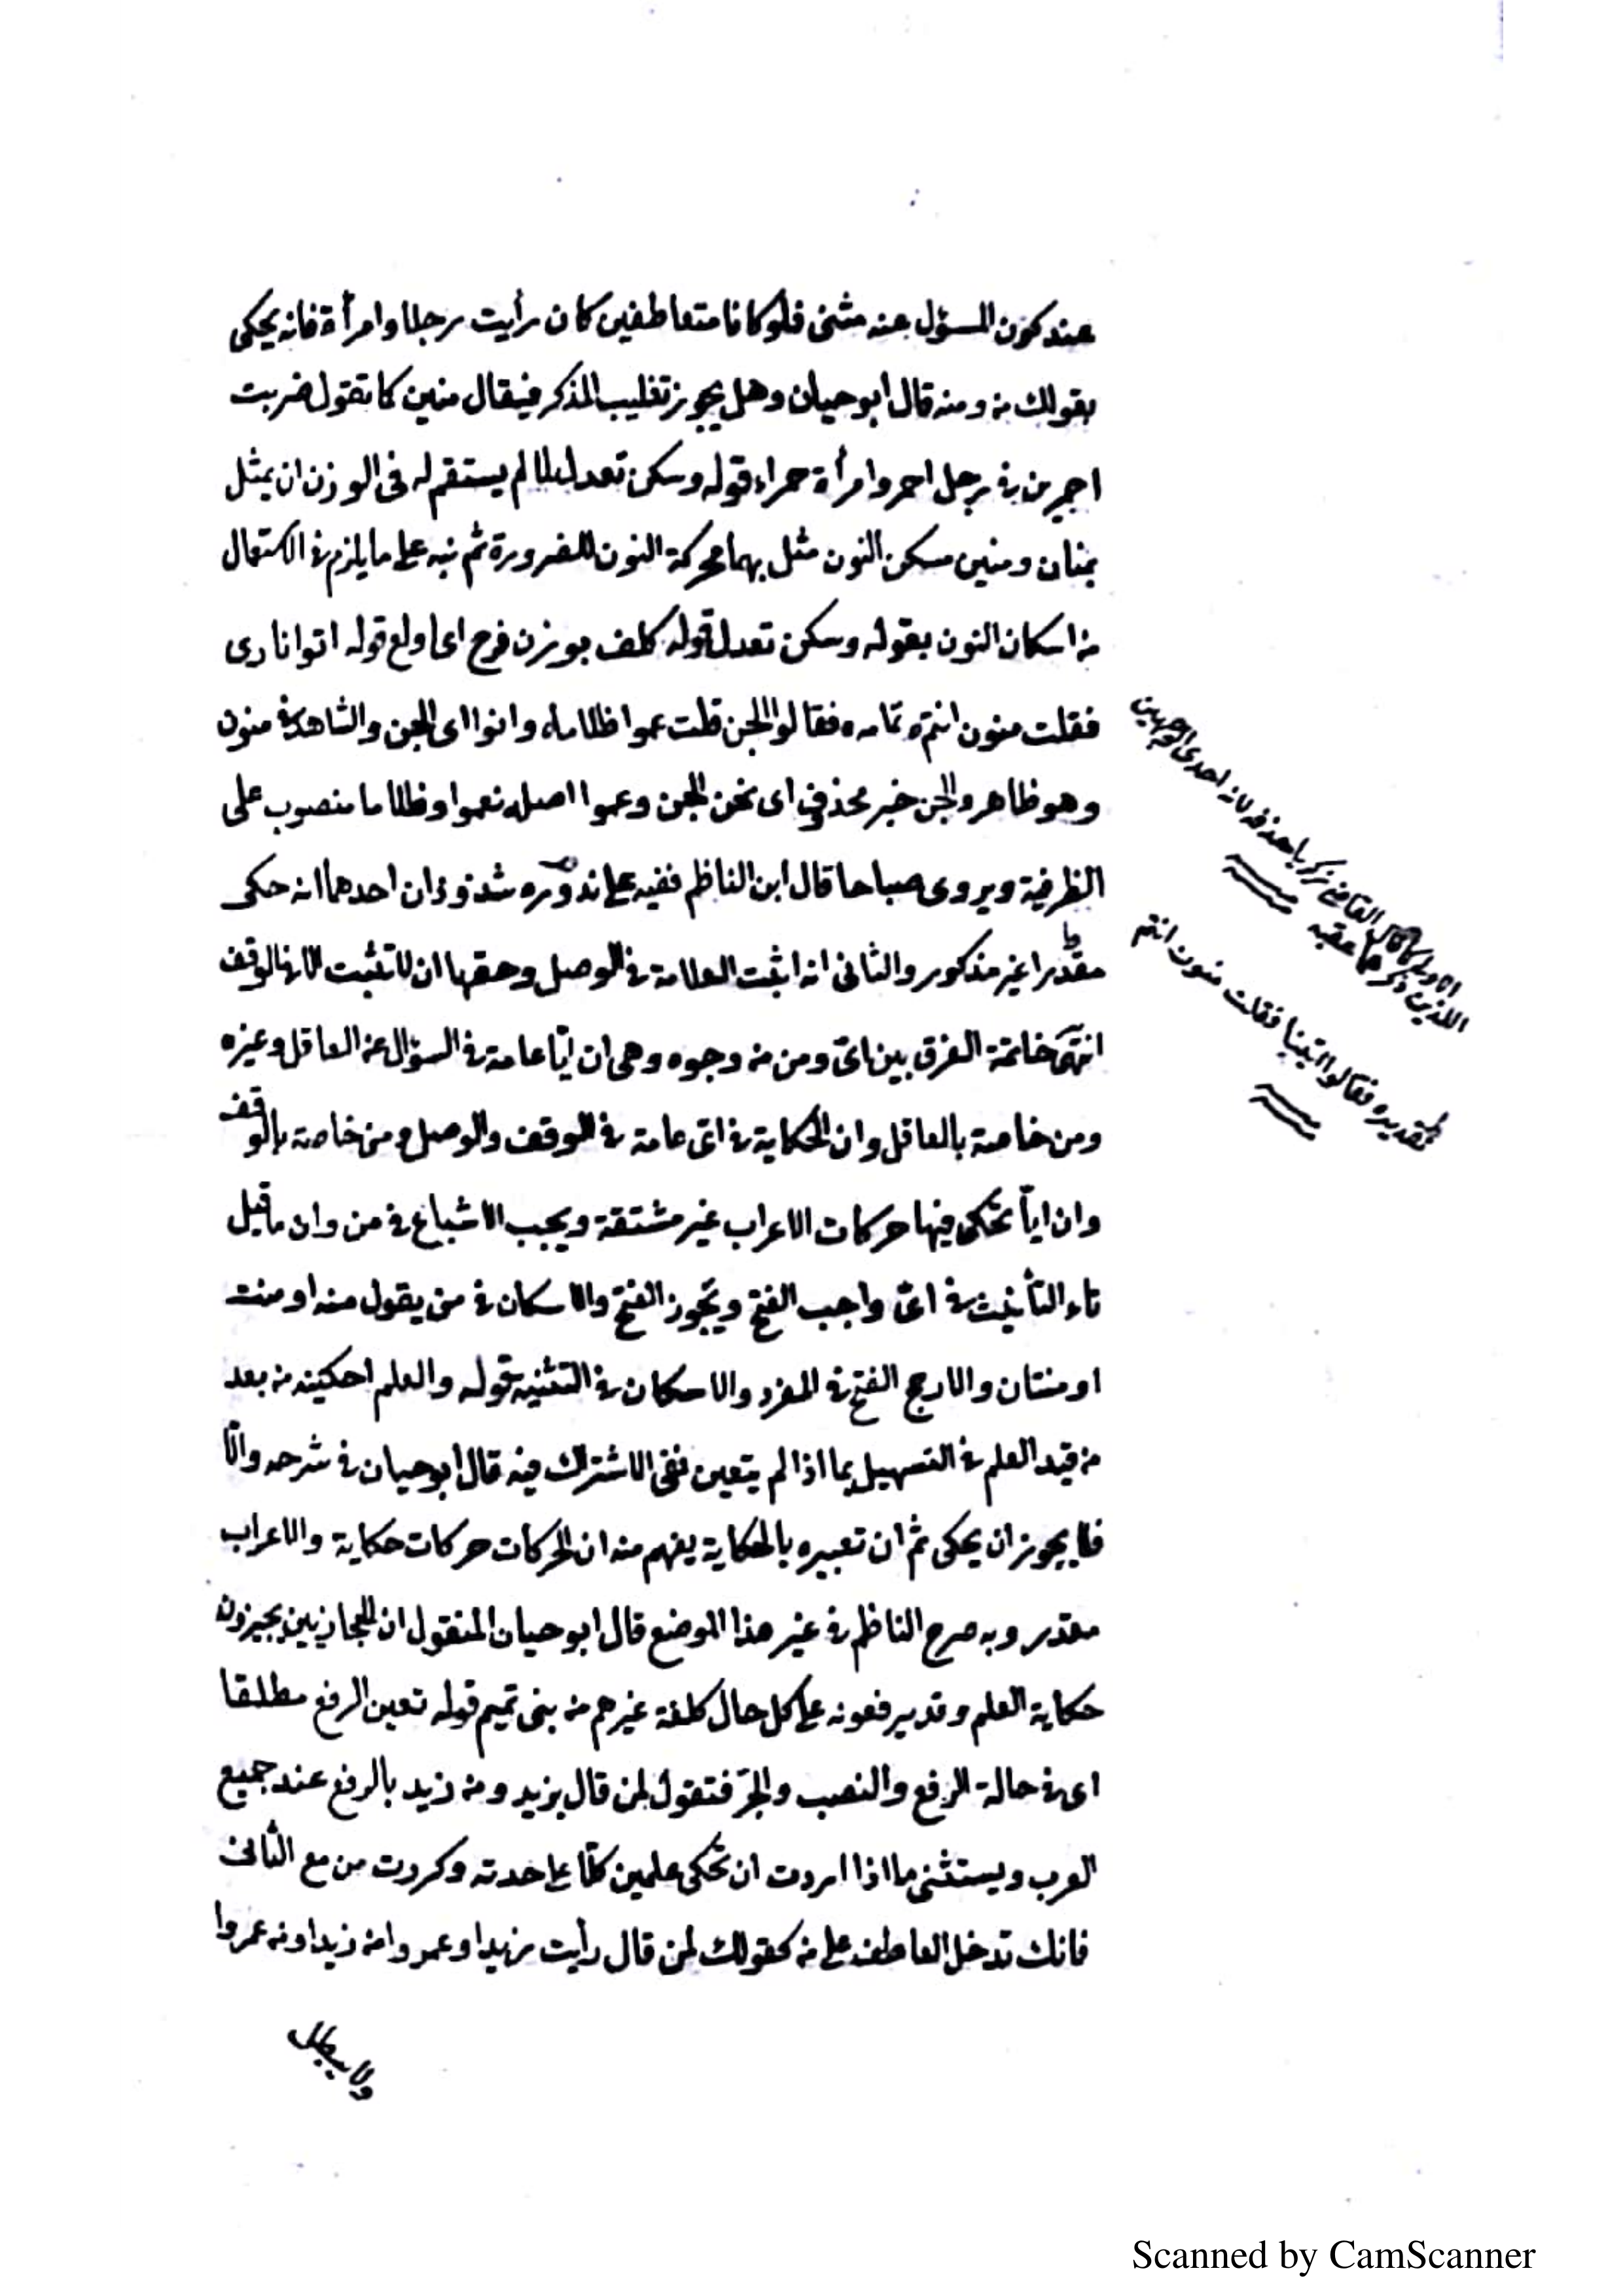 عند كون المسؤل عنه مثنى فلو كانا متعاطفين كان رأيت رجلا وامرأة فانه يحكى
بقولك من ومنه قال ابو حيان وهل يجوز تغليب المذكر فيقال منين كما تقول ضربت
احمرين فى رجل احمر وامرأة حمراء قوله وسكن تعدل لما لم يستقم له فى الوزن ان يمثل
بمنان ومنين مسكن النون مثل بهما محركة النون للضرورة ثم نبه على ما يلزم فى الاستعمال
من اسكان النون بقوله وسكن تعدل قوله كلف بوزن فرح اى اولع قوله اتوا نارى
فقلت منون انتم تمامه فقالوا الجن قلت عموا ظلاما واتوا اى الجن والشاهد فى منون
وهو ظاهر والجن خبر محذوف اى نحن الجن وعموا اصله نعموا وظلاما منصوب على
الظرفية ويروى صباحا قال ابن الناظم ففيه على ندوره شذوذان احدهما انه حكى
مقدرا غير مذكور والثانى انه اثبت العلامة فى الوصل وحقها ان لا تثبت الا فى الوقف
انتهى خاتمة الفرق بين اى ومن من وجوه وهى ان ايّا عامة فى السؤال عن العاقل وغيره
ومن خاصة بالعاقل وان الحكاية فى اىّ عامة فى الوقف والوصل ومن خاصة بالوقف
وان اياّ تحكى فيها حركات الاعراب غير مشتقة ويجب الاشباع فى من وان ما قبل
تاء التأنيث فى اىّ واجب الفتح ويجوز الفتح والاسكان فى من يقول منه او منت
او منتان والارجح الفتح فى المفرد والاسكان فى التثنية قوله والعلم احكينه من بعد
من قيد العلم فى التسهيل بما اذا لم يتعين نفى الاشتراك فيه قال ابو حيان فى شرحه والّا
فلا يجوز ان يحكى ثم ان تعبيره بالحكاية يفهم منه ان الحركات حركات حكاية والاعراب
مقدر وبه صرح الناظم فى غير هذا الموضع قال ابو حيان المنقول ان الحجازيين يجيزون
حكاية العلم وقد يرفعونه على كل حال كلغة غيرهم من بنى تميم قوله تعين الرفع مطلقا
اى فى حالة الرفع والنصب والجر فتقول لمن قال بزيد ومن زيد بالرفع عند جميع
العرب ويستثنى ما اذا اردت ان تحكى علمين كلّا على حدته وكررت من مع الثانى
فانك تدخل العاطف على من كقولك لمن قال رأيت زيدا وعمروا من زيدا ومن عمروا
ولا يبطل
الاولى كما قال القاضى زكريا حذفه لانه احدى الوجهين
اللذين ذكرهما عقبه
تقديره فقالوا اتينا فقلت منون انتم
Scanned by CamScanner